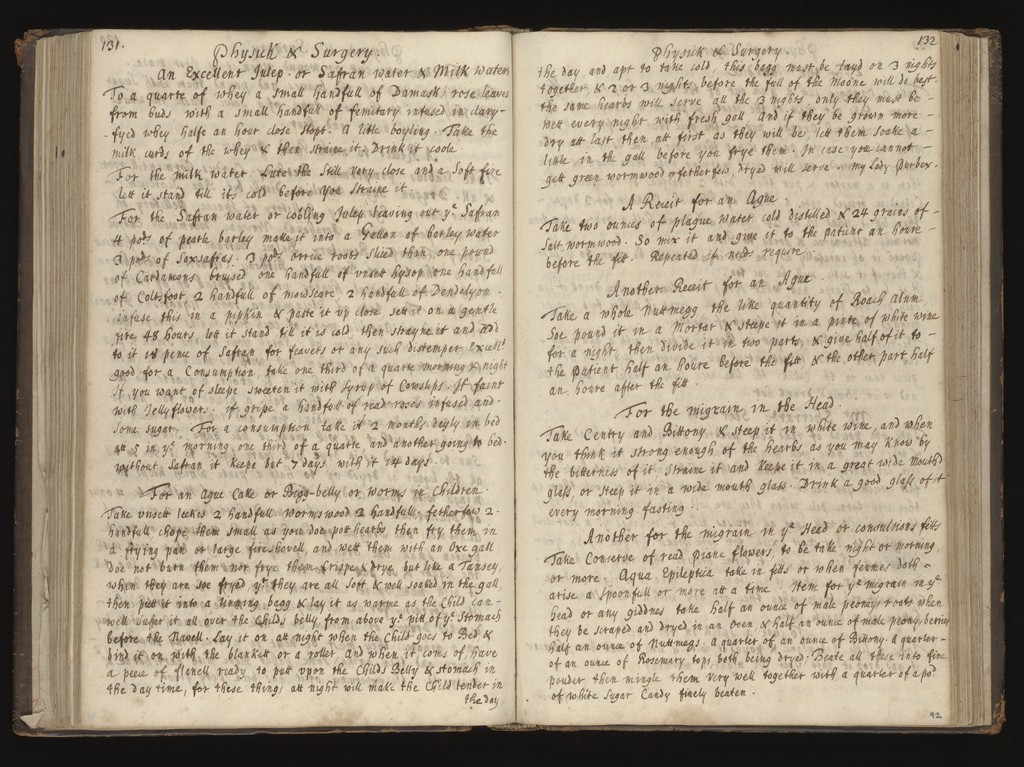 131.
Physick & Surgery
An Excellent Julep. or Safran water & Milk water
To a quarte of whey a small handfull of Damask rose leaves
from buds with a small handfull of femitary infused in clary-
fyed whey halfe an hour close stopt. A litle boyling. Take the
milk curds of the whey & then straine it. Drink it coole
For the milk water. Lute the Still very close and a Soft fire
lett it stand till its cold before you straine it
For the Safran water or cobling Julep leaving out ye Safran
4 pods of pearle barley make it into a Gellon of barley water
3 pnds of Saxsafras. 3 pods orrice roots slied then one pound
of Cardamons bruised one handfull of unsett hysop one handfull
of Coltsfoot, 2 handfull of mowseare 2 handfull of Dendelyon
infuse this in a pipkin & paste it up close sett it on a gentle
fire 48 hours lett it stand till it is cold then strayne it and add
to it 18 pence of Safran for feavers or any such distemper Excellt
good for a Consumption, take one third of a quarte morning & night
If you want of sleepe sweeten it with syrop of Cowslips. If faint
with Jellyflowers. if gripe a handfull of read roses infused and
some sugar. For a consumption take it 2 months deyly in bed
att 5 in ye morning one third of a quarte and another going to bed.
without Safran it keepe bet 7 days with it 14 days
For an Ague Cake or Bigg-belly or worms in Children.
Take unsett leekes 2 handfull wormswood 2 handfull, fetherfew 2
handfull chope them small as you doe pott hearbs, then fry them in
a frying pan or large fireshovell, and wett them with an Oxe gall
doe not burn them nor frye them krispe & drye, but like a Tansey,
when they are soe fryed yt they are all soft & well soaked in the gall,
then putt it into a linning bagg & lay it as warme as the Child can
well suffer it all over the Childs belly from above ye pitt of ye Stomach
before the Navell. Lay it on att night when the Child goes to Bed &
bind it on with the blankitt or a roller And when it coms of, have
a peece of flanell ready to putt upon the Childs Belly & stomach in
the day time, for these things att night will make the Child tender in
the day
132
Physick & Surgery.
the day, and apt to take cold, this bagg must be layd on 3 nights
together & 2 or 3 nights before the full of the Moone will do best
the same hearbs will serve all the 3 nights only they must be
wett every night with fresh gall And if they be grown more
dry att last then att first as they will be lett them soake a
little in the gall before you frye them. In case you cannot
gett green wormwood or fetherfew dryed will serve. my Lady Purbex.
A Receit for an Ague
Take two ounces of plague water cold distilled & 24 grains of
salt wormwood. So mix it and give it to the patient an houre
before the fitt. Repeated if needs require
Another Receit for an Ague
Take a whole Nuttmegg the like quantity of Roach alum
Soe pound it in a Mortar & steepe it in a pinte of white wine
for a night, then divide it in two parts, & give half of it to
the patient half an houre before the fitt & the other part half
an houre after the fitt
For the migrain in the Head
Take Centry and Bittony & steep it in white wine, and when
you think it strong enough of the hearbs, as you may know by
the bitterness of it Straine it and keepe it in a great wide mouthd
glass, or steep it in a wide mouth glass. Drink a good glass of it
every morning fasting
Another for the migrain in ye Head or convulsions fitts
Take Conserve of read piane flowers, to be take night or morning,
or more. Aqua Epileptica take in fitts or when feumes doth
arise a spoonfull or more att a time Item for ye migrain in ye
head or any giddnes take half an ounce of male peoney roots when
they be scraped and dryed in an Oven & half an ounce of male peony berries
half an ounce of Nuttmegs. a quarter of an ounce of Bittony. a quarter
of an ounce of Rosemary tops both being dryed. Beate all these into fine
pouder then mingle them very well together with a quarter of a po:
of white Sugar Candy finely beaten.
92